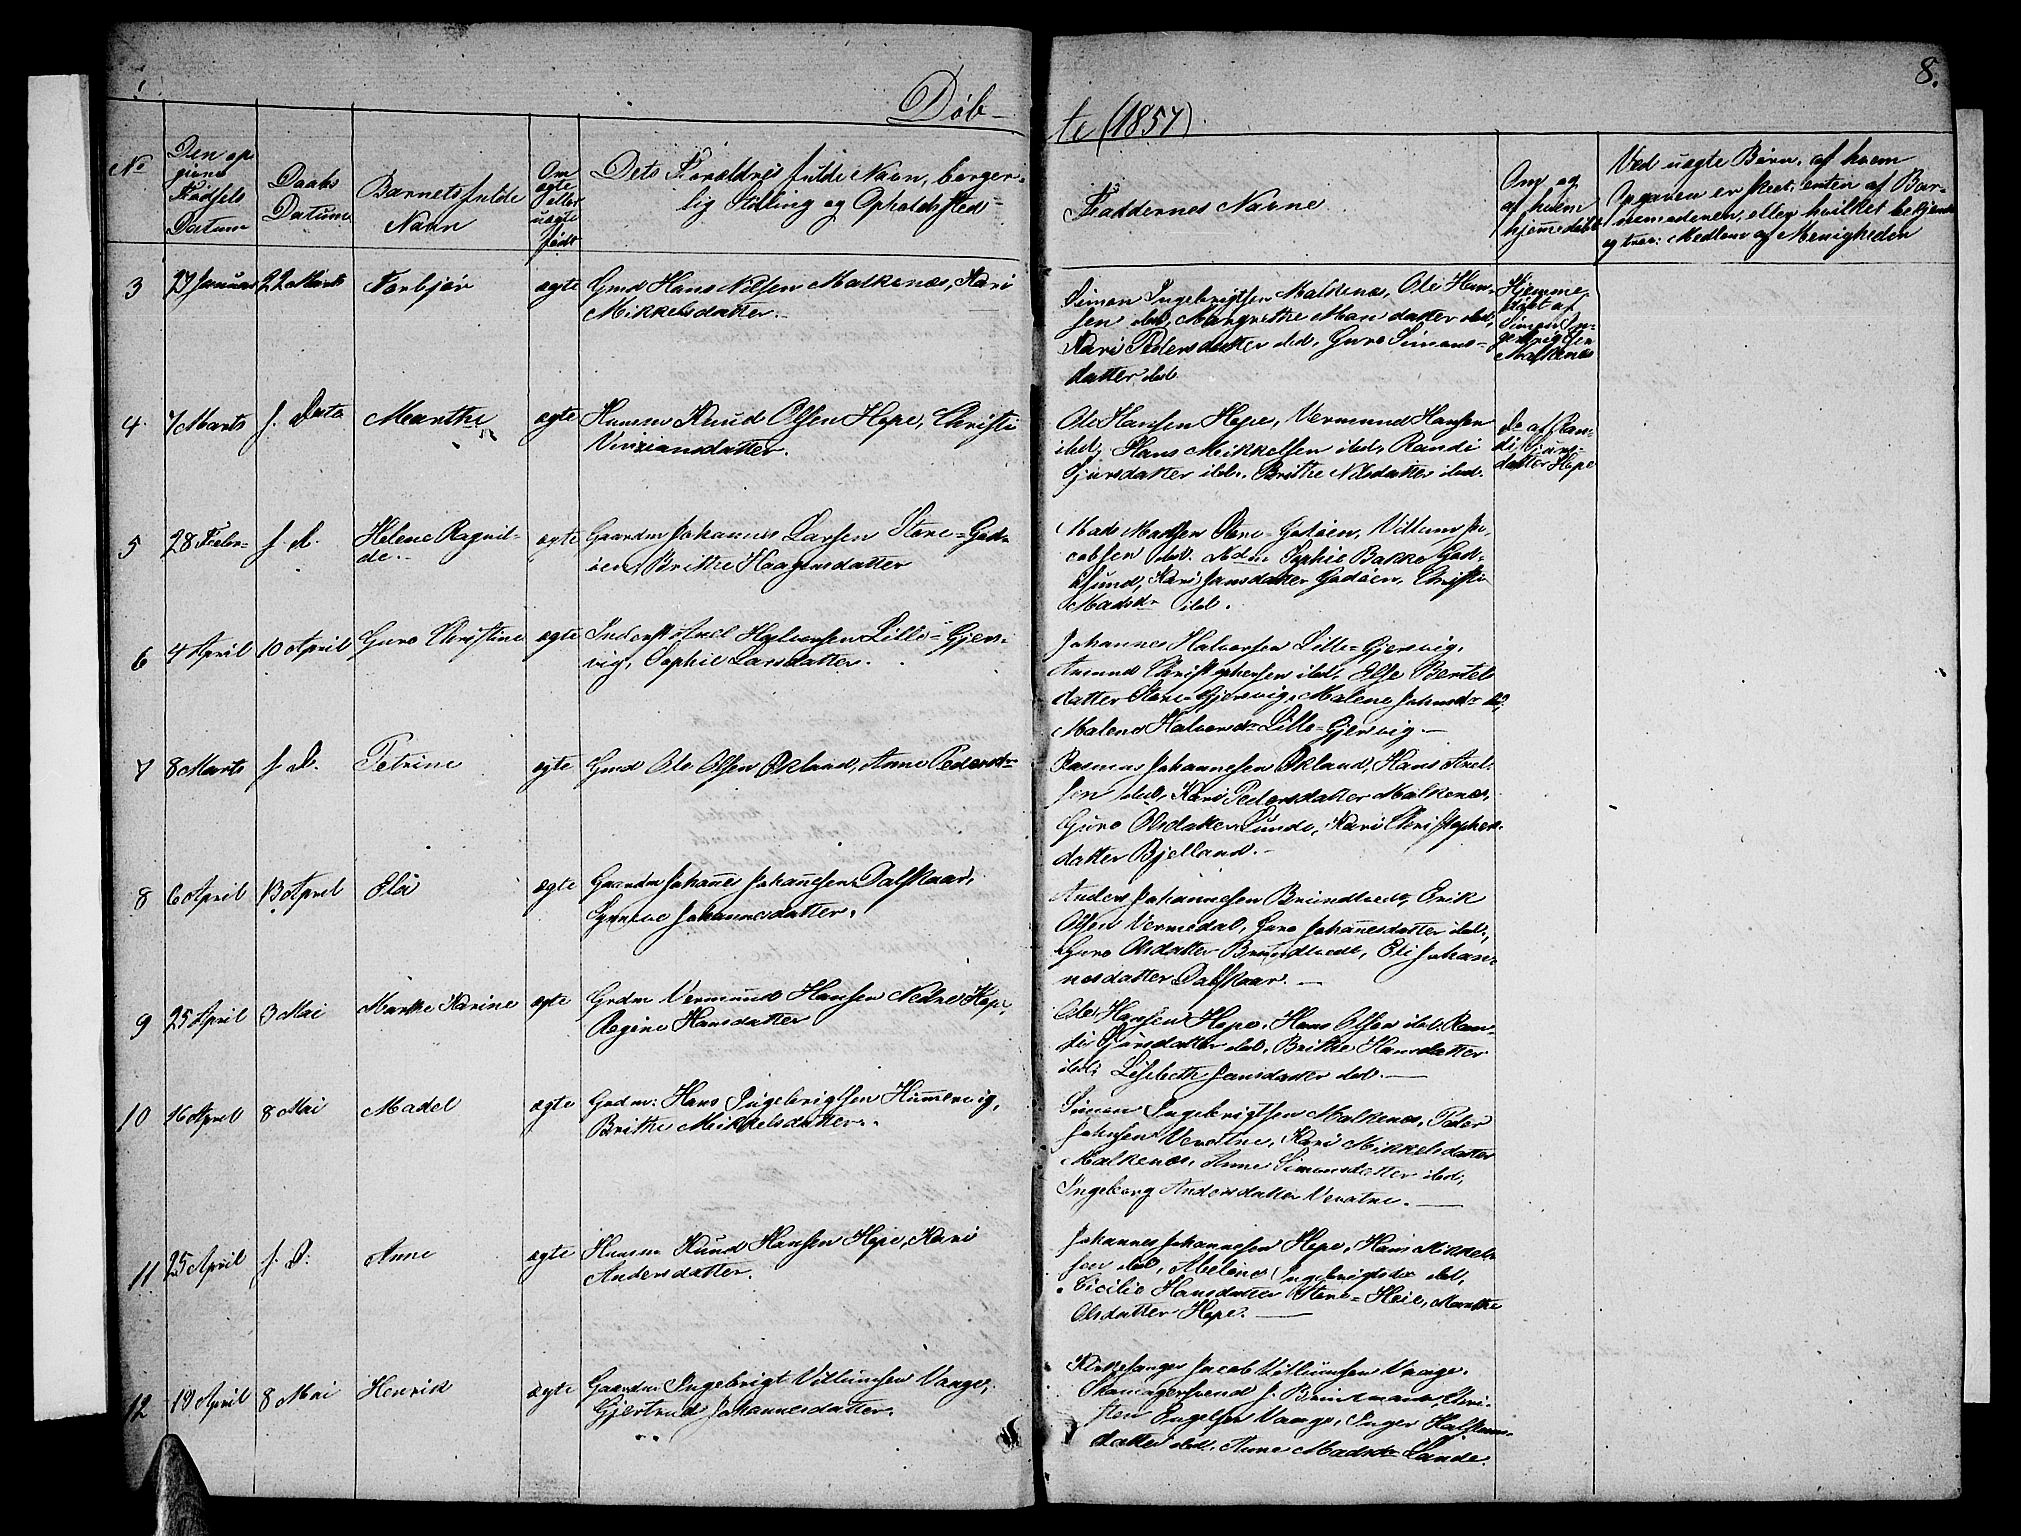 8.
Døb-
te (1857).
No
Den op
givne
Fødsels
Datum
Daabs
Datum
Barnets fulde
Navn
Om
ægte
eller
uægte
født
Dets Forældres fulde Navn, borger-
lig Stilling og Opholdsted
Faddernes Navne
Om og
af hvem
hjemmedøbt
Ved uægte Børn, af hvem
Opgaven er skeet, enten af Bar-
nemoderen, eller hvilket bekjendt
og trov: Medlem af Menigheden
3 27 Januar 22 Marts Torbjør ægte Gmd Hans Nilsen Malkenæs, Kari
Mikkelsdatter.
Simon Ingebrigtsen Malkenæs, Ole Han-
sen ibid, Margrethe Mons datter ibid,
Kari Pedersdatter ibid, Guro Simons-
datter ibid.
Hjemme
døbt af
Simon In-
gebrigtsen
Malkenæs
4. 7 Marts s. Dato Marthe ægte Huusm Knud Olsen Hope, Christi
Vivriansdatter.
Ole Hansen Hope, Vermund Hansen
ibid, Hans Mikkelsen ibid, Randi
Gjursdatter ibid. Brithe Nilsdatter ibid.
Do af Ran-
di Gjurs-
datter Hope
5 28 Febr- s. D. Helene Ragnil-
de.- ægte Gaardm Johannes Larsen Store-God-
øen, Brithe Haagensdatter
Mads Madsen Store-Godøen, Villum Ja-
cobsen ibid. Mdm Sophie Bakke God-
øsund, Kari Jansdatter Godøen, Christi
Madsdr ibid.
6 4 April 10 April Guro Christine ægte Inderst Axel Halvorsen Lille-Gjers-
vig, Sophie Larsdatter.
Johannes Halvorsen Lille-Gjersvig,
Amund Christophersen ibid, Else Bertels
datter Store Gjersvig, Malene Johansdr ibid,
Malene Halvorsdr Lille-Gjersvig.
7 8 Marts s. D. Petrine ægte Gmd Ole Olsen Økland, Anne Pedersdr
Rasmus Johannesen Økland, Hans Axel-
sen ibid, Kari Pedersdatter Malkenæs,
Guro Olsdatter Lunde, Kari Christopher-
datter Bjelland.-
8 6 April 13 April Eli ægte Gaardm Johanes Johanesen Dalskaar,
Synneve Johannesdatter.
Anders Johannesen Brundtvedt, Erik
Olsen Vermedal, Guro Johanesdatter ibid,
Guro Olsdatter Brundtvedt, Eli Johan-
nesdatter Dalskaar.
9 25 April 3 Mai Marthe Karine ægte Grdm Vermund Hansen Nedre Hope,
Regine Hansdatter
Ole Hansen Hope, Hans Olsen ibid, Ran-
di Gjursdatter ibid, Brithe Hansdatter
ibid, Lisebeth Jansdatter ibid.
10 16 April 8 Mai Madel ægte Grdm: Hans Ingebrigtsen Humervig,
Brithe Mikkelsdatter.
Simon Ingebrigtsen Malkenæs, Peder
Johnsen Veratne, Kari Mikkelsdatter
Malkenæs, Anne Simonsdatter ibid,
Ingeborg Andersdatter Veratne.
11 25 April s. D. Anne ægte Huusm Knud Hansen Hope, Kari
Andersdatter.
Johannes Johannesen Hope, Hans Mikkel-
sen ibid, Abelone Ingebrigtsdr ibid,
Cicilie Hansdatter Store-Heie, Marthe
Olsdatter Hope.
12 19 April 8 Mai Henrik ægte Gaardm Ingebrigt Villumsen Vaage,
Gjertrud Johannesdatter.
Kirkesanger Jacob Villumsen Vaage,
J. Brinkmann, Chri-
sten Engelsen Vaage, Inger
datter ibid. Anne Madsdr Sande.